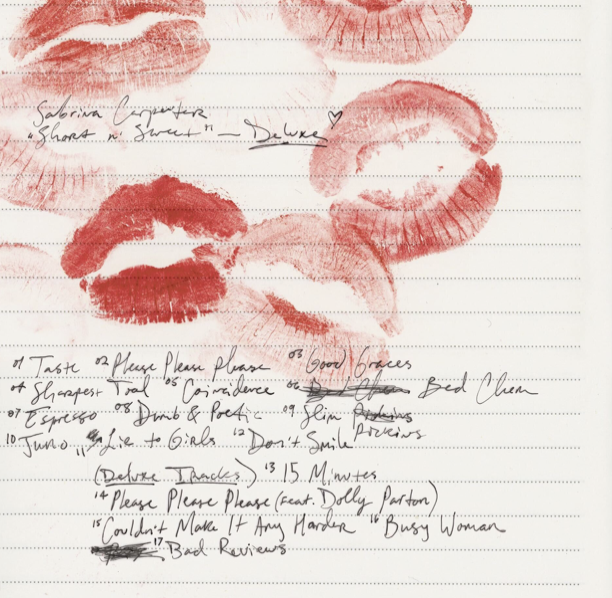 Sabrina Carpenter
"Short n' Sweet" — Deluxe ♡
01 Taste 02 Please Please Please 03 Good Graces
04 Sharpest Tool 05 Coincidence 06 Bed Chem Bed Chem
07 Espresso 08 Dumb & Poetic 09 Slim Pickins
Pickins
10 Juno 11 Lie to Girls 12 Don't Smile
(Deluxe Tracks) 13 15 Minutes
14 Please Please Please (feat. Dolly Parton)
15 Couldn't Make It Any Harder 16 Busy Woman
17 Bad Reviews